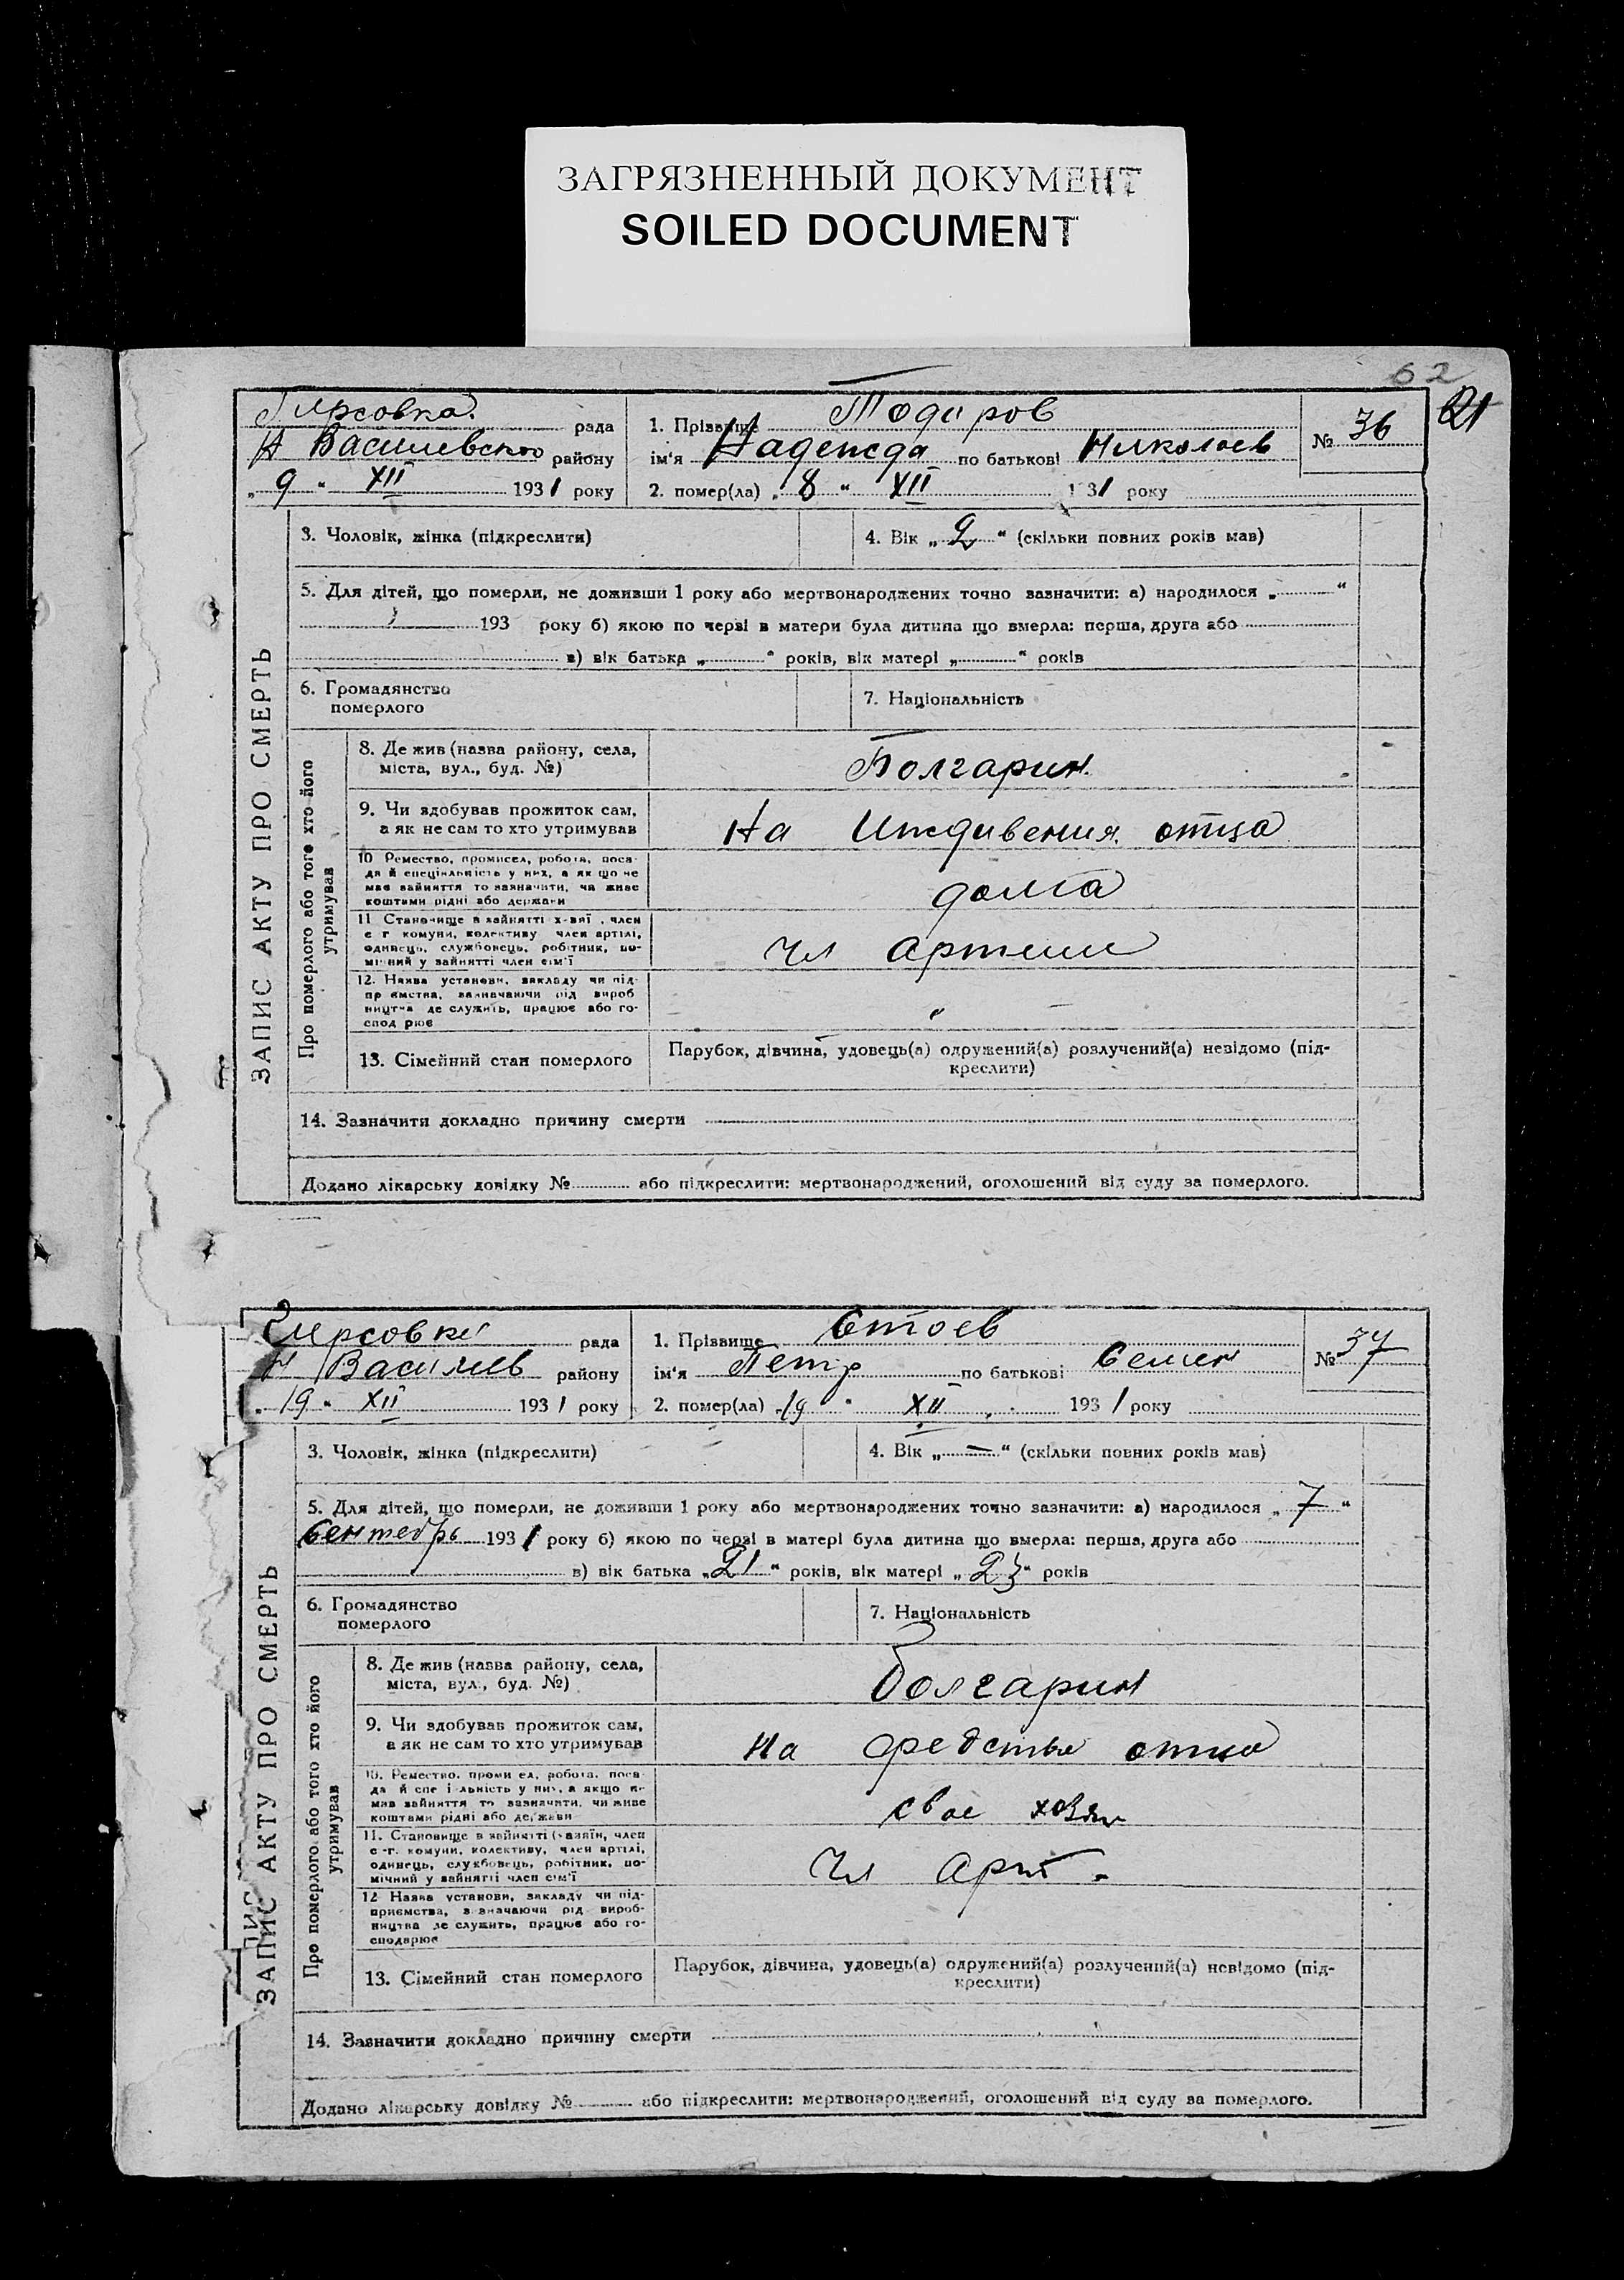 ЗАГРЯЗНЕННЫЙ ДОКУМЕНТ
SOILED DOCUMENT
62
21
Гирсовка рада
Н Василевского району
„ 9 “ XII 1931 року
1. Прізвище Тодиров
ім‘я Надежда по батькові Николаев
№ 36
2. помер(ла) „ 8 “ XII 131 року
ЗАПИС АКТУ ПРО СМЕРТЬ
3. Чоловік, жінка (підкреслити)
4. Вік „ 2 “ (скільки повних років мав)
5. Для дітей, що померли, не доживши 1 року або мертвонароджених точно зазначити: а) народилося „ “
193 року б) якою по черзі в матери була дитина що вмерла: перша, друга або
в) вік батька „ “ років, вік матері „ “ років
6. Громадянство
померлого
7. Національність
Про померлого або того хто його
утримував
8. Де жив (назва району, села,
міста, вул., буд. №)
Болгарин
9. Чи здобував прожиток сам,
а як не сам то хто утримував
На Иждивения отца
10 Ремество, промисел, робота, поса-
да й спеціальність у них, а як що не
має зайняття то зазначити, чи живе
коштами рідні або держави
дома
11 Становище в зайнятті х-зяї , член
с г комуни, колективу член артілі,
одинець, службовець, робітник, по-
мічний у зайнятті член сім‘ї
чл артели
12. Назва установи, закладу чи під-
пр ємства, зазначаючи рід вироб
ництва де служить, працює або го-
спод рює
"
13. Сімейний стан померлого
Парубок, дівчина, удовець(а) одружений(а) розлучений(а) невідомо (під-
креслити)
14. Зазначити докладно причину смерти
Додано лікарську довідку № або підкреслити: мертвонароджений, оголошений від суду за померлого.
Гирсовки рада
Н Василев району
„ 19 “ XII 1931 року
1. Прізвище Стоев
ім‘я Петр по батькові Семен
№ 37
2. помер(ла) „ 19 “ XII 1931 року
ЗАПИС АКТУ ПРО СМЕРТЬ
3. Чоловік, жінка (підкреслити)
4. Вік „ — “ (скільки повних років мав)
5. Для дітей, що померли, не доживши 1 року або мертвонароджених точно зазначити: а) народилося „ 7 “
Сентебрь 1931 року б) якою по черзі в матері була дитина що вмерла: перша, друга або
в) вік батька „ 21 “ років, вік матері „ 23 “ років
6. Громадянство
померлого
7. Національність
Про померлого або того хто його
утримував
8. Де жив (назва району, села,
міста, вул., буд. №)
болгарин
9. Чи здобував прожиток сам,
а як не сам то хто утримував
на средства отца
10. Ремество, проми ел, робота, поса-
да й спе і льність у них, а якщо не
мав зайняття то зазначити, чи живе
коштами рідні або держави
свое хозяи
11. Становище в зайнятті (хазяїн, член
с -г. комуни, колективу, член артілі,
одинець, службовець, робітник, по-
мічний у зайнятті член сім‘ї
Чл арт.
12 Назва установи, закладу чи під-
приємства, зазначаючи рід вироб-
ництва де служить, працює або го-
сподарює
13. Сімейний стан померлого
Парубок, дівчина, удовець(а) одружений(а) розлучений(а) невідомо (під-
креслити)
14. Зазначити докладно причину смерти
Додано лікарську довідку № або підкреслити: мертвонароджений, оголошений від суду за померлого.